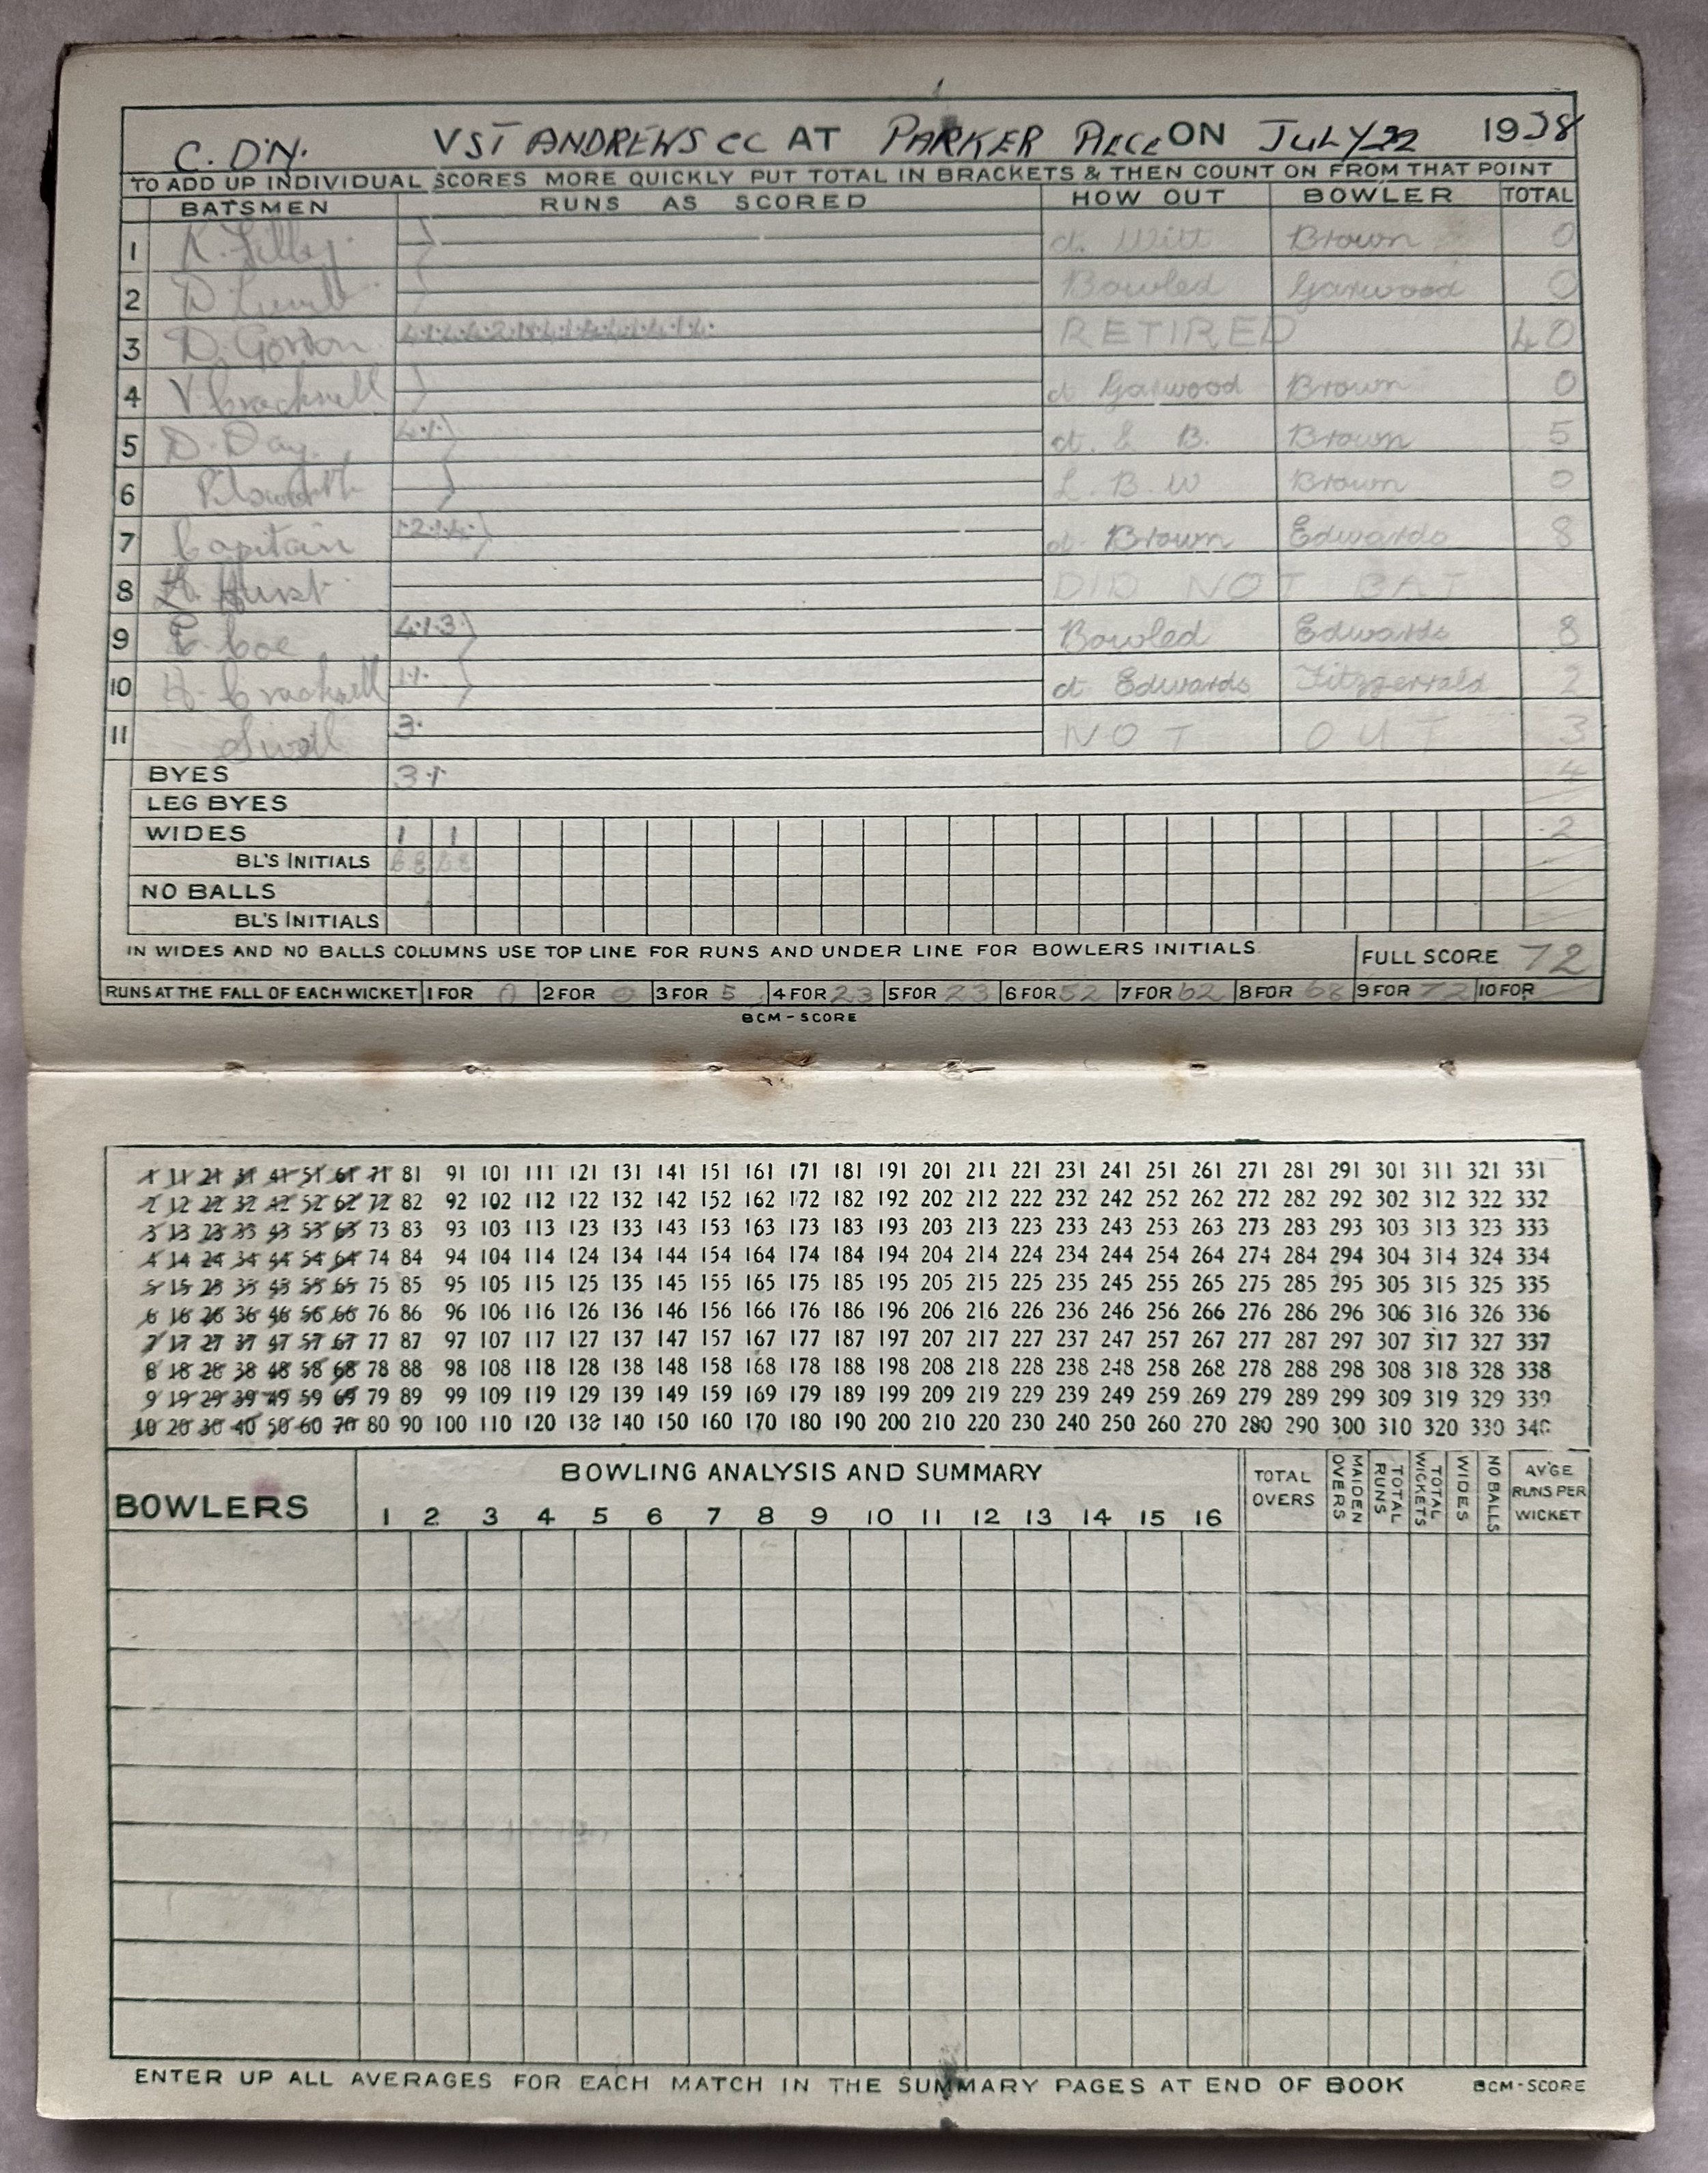 C. D'N. V ST ANDREWS CC AT PARKER PIECE ON JULY 22 1938
TO ADD UP INDIVIDUAL SCORES MORE QUICKLY PUT TOTAL IN BRACKETS & THEN COUNT ON FROM THAT POINT
BATSMEN RUNS AS SCORED HOW OUT BOWLER TOTAL
1 K. Lilley ct. Witt Brown 0
2 D. Bowled Garwood 0
3 D. Gordon RETIRED 40
4 V. Cracknell ct Garwood Brown 0
5 D. Day. 4·1· ct. L B. Brown 5
6 L. B. W Brown 0
7 Captain 1·2·1·4· ct. Brown Edwards 8
8 Hurst DID NOT BAT
9 Coe 4·1·3· Bowled Edwards 8
10 H. Cracknell 1·1· ct Edwards Fitzgerrald 2
11 3· NOT OUT 3
BYES 3·1· 4
LEG BYES
WIDES 1 1 2
BL'S INITIALS
NO BALLS
BL'S INITIALS
IN WIDES AND NO BALLS COLUMNS USE TOP LINE FOR RUNS AND UNDER LINE FOR BOWLERS INITIALS. FULL SCORE 72
RUNS AT THE FALL OF EACH WICKET 1 FOR 0 2 FOR 0 3 FOR 5 4 FOR 23 5 FOR 23 6 FOR 52 7 FOR 62 8 FOR 68 9 FOR 72 10 FOR
BCM-SCORE
1 11 21 31 41 51 61 71 81 91 101 111 121 131 141 151 161 171 181 191 201 211 221 231 241 251 261 271 281 291 301 311 321 331
2 12 22 32 42 52 62 72 82 92 102 112 122 132 142 152 162 172 182 192 202 212 222 232 242 252 262 272 282 292 302 312 322 332
3 13 23 33 43 53 63 73 83 93 103 113 123 133 143 153 163 173 183 193 203 213 223 233 243 253 263 273 283 293 303 313 323 333
4 14 24 34 44 54 64 74 84 94 104 114 124 134 144 154 164 174 184 194 204 214 224 234 244 254 264 274 284 294 304 314 324 334
5 15 25 35 45 55 65 75 85 95 105 115 125 135 145 155 165 175 185 195 205 215 225 235 245 255 265 275 285 295 305 315 325 335
6 16 26 36 46 56 66 76 86 96 106 116 126 136 146 156 166 176 186 196 206 216 226 236 246 256 266 276 286 296 306 316 326 336
7 17 27 37 47 57 67 77 87 97 107 117 127 137 147 157 167 177 187 197 207 217 227 237 247 257 267 277 287 297 307 317 327 337
8 18 28 38 48 58 68 78 88 98 108 118 128 138 148 158 168 178 188 198 208 218 228 238 248 258 268 278 288 298 308 318 328 338
9 19 29 39 49 59 69 79 89 99 109 119 129 139 149 159 169 179 189 199 209 219 229 239 249 259 269 279 289 299 309 319 329 339
10 20 30 40 50 60 70 80 90 100 110 120 130 140 150 160 170 180 190 200 210 220 230 240 250 260 270 280 290 300 310 320 330 340
BOWLING ANALYSIS AND SUMMARY
BOWLERS 1 2 3 4 5 6 7 8 9 10 11 12 13 14 15 16 TOTAL OVERS MAIDEN OVERS TOTAL RUNS TOTAL WICKETS WIDES NO BALLS AV'GE RUNS PER WICKET
ENTER UP ALL AVERAGES FOR EACH MATCH IN THE SUMMARY PAGES AT END OF BOOK BCM-SCORE